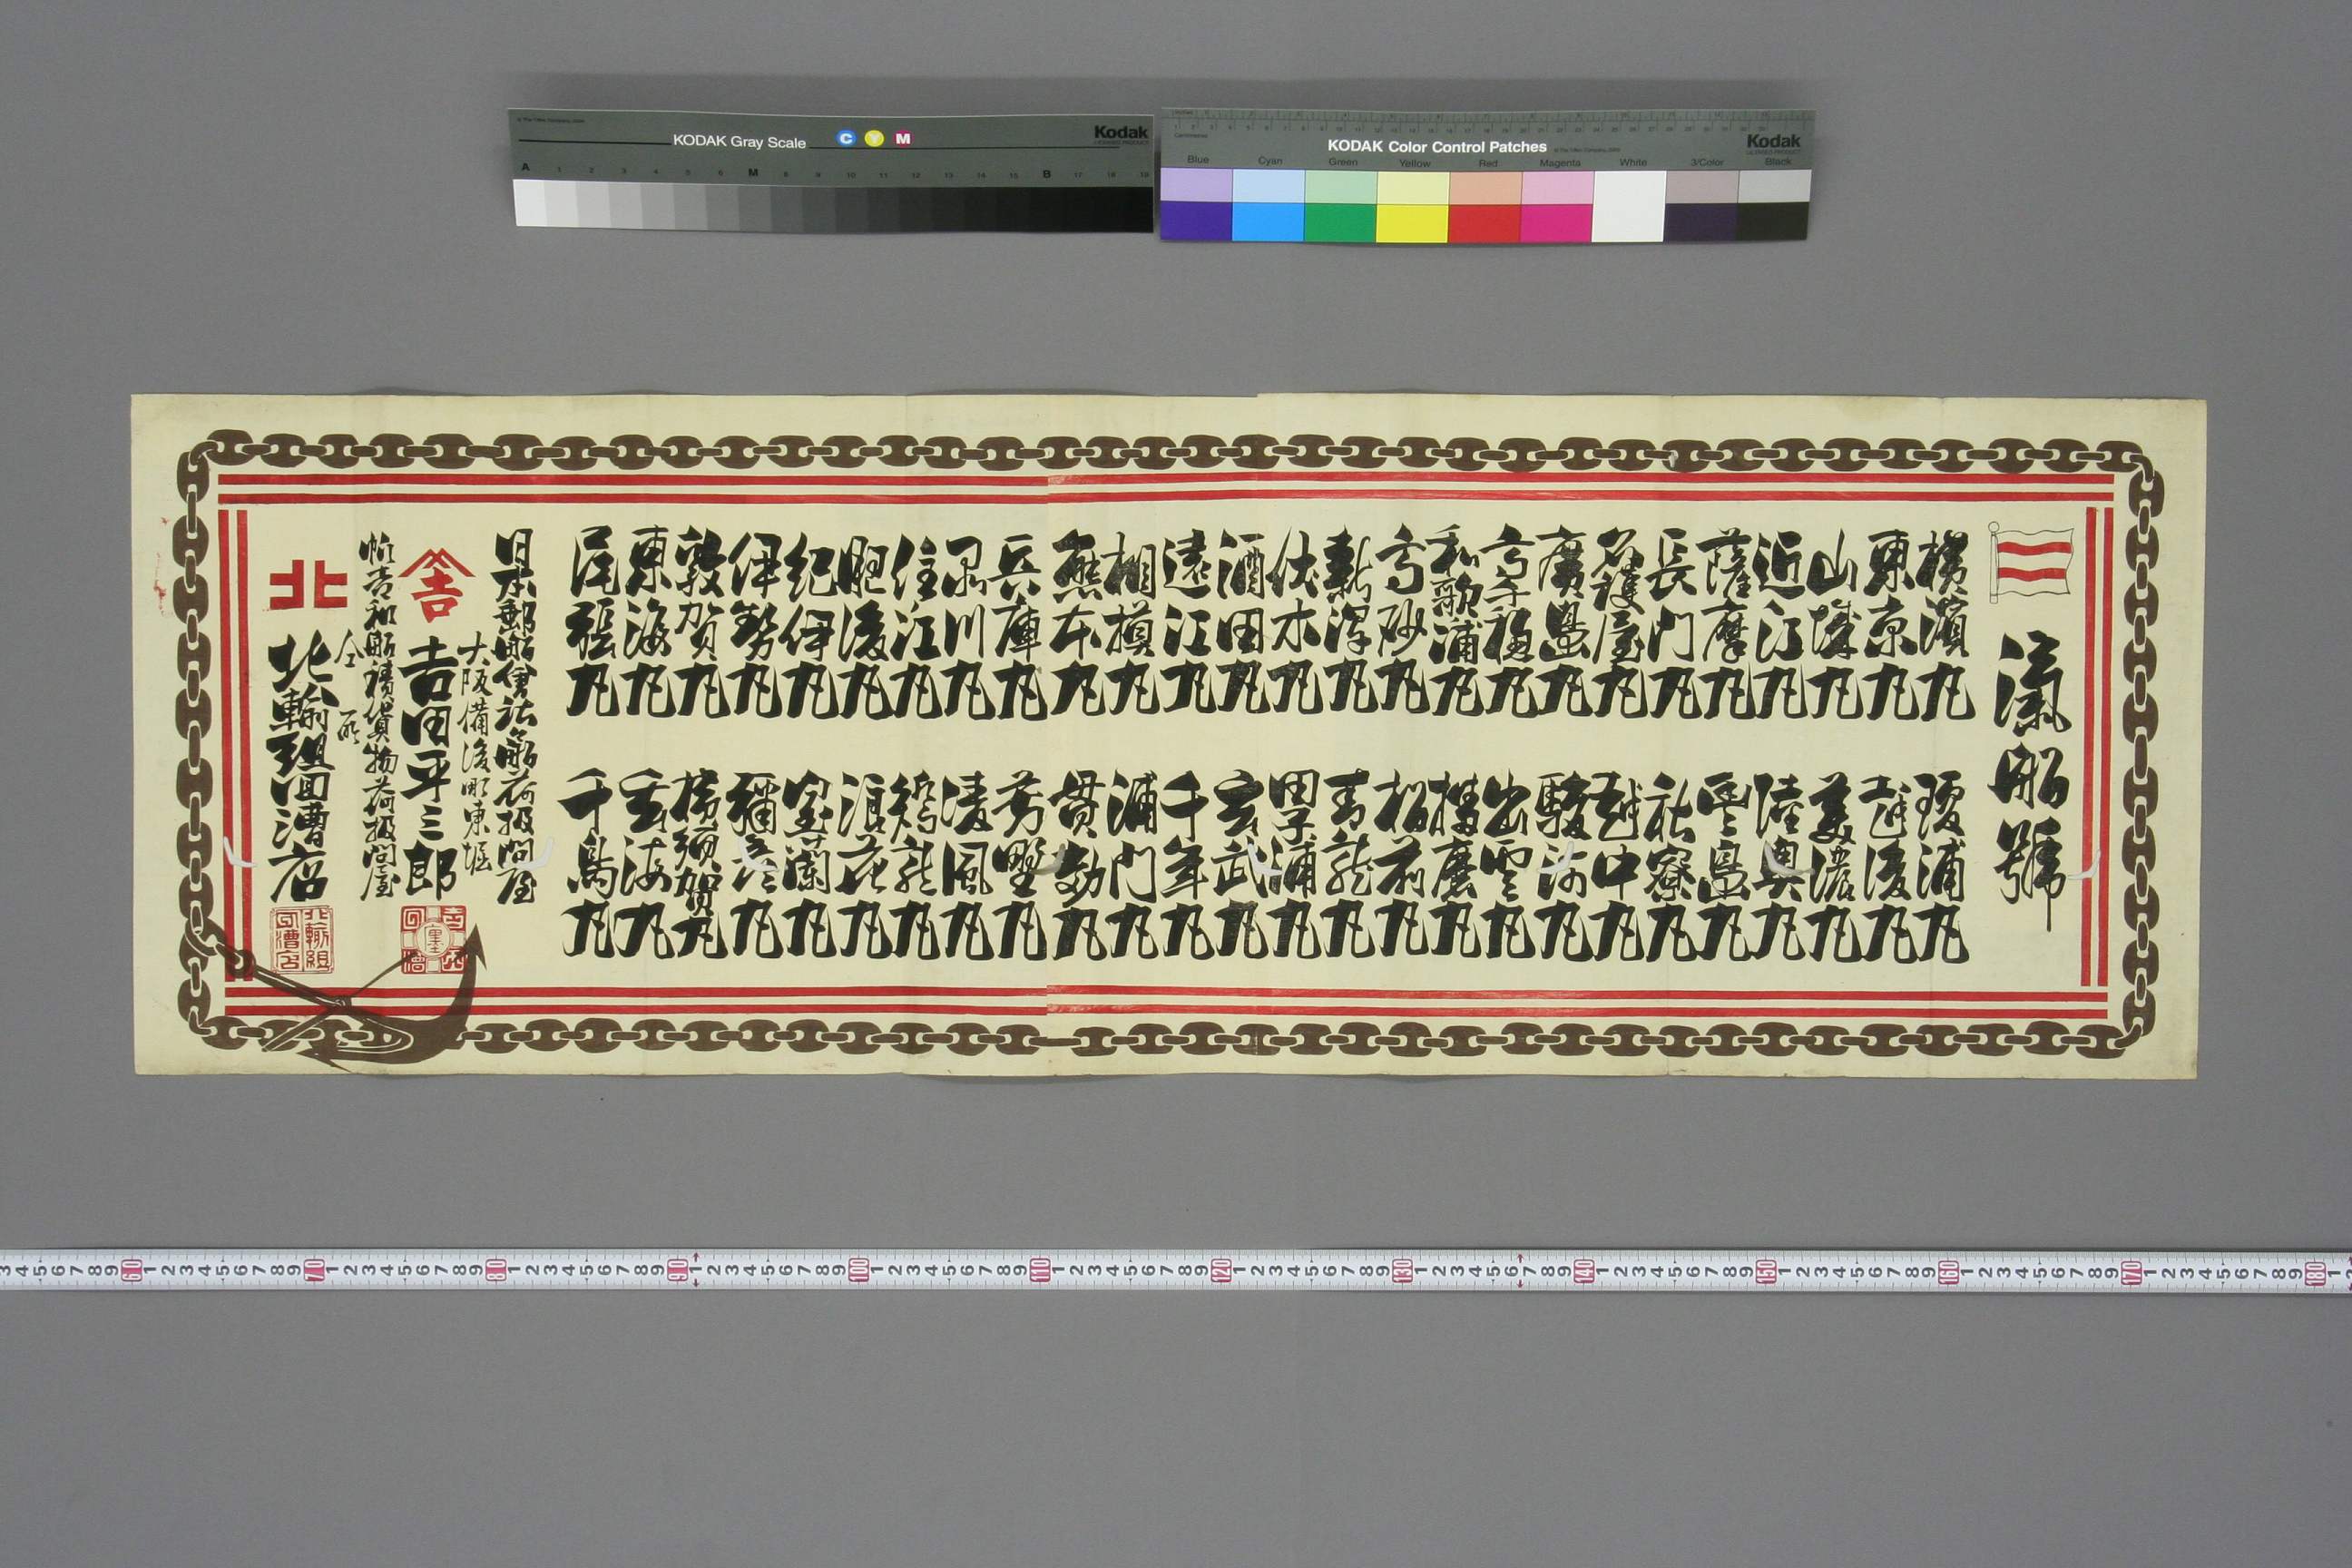 KODAK Gray Scale
C Y M
Kodak
A 1 2 3 4 5 6 M 8 9 10 11 12 13 14 15 B 17 18 19
KODAK Color Control Patches
Kodak
Blue Cyan Green Yellow Red Magenta White 3/Color Black
滊船號
横濱丸
東京丸
山城丸
近江丸
薩摩丸
長門丸
名護屋丸
廣島丸
高千穂丸
和歌浦丸
高砂丸
新潟丸
伏木丸
酒田丸
遠江丸
相模丸
熊本丸
兵庫丸
品川丸
住江丸
肥後丸
紀伊丸
伊勢丸
敦賀丸
東海丸
尾張丸
瓊浦丸
越後丸
美濃丸
陸奥丸
豊島丸
社寮丸
越中丸
駿河丸
出雲丸
播磨丸
松前丸
青龍丸
田子浦丸
玄武丸
千年丸
浦門丸
貫効丸
芳野丸
凌風丸
鶴龍丸
浪花丸
室蘭丸
彌彦丸
横須賀丸
玄海丸
千島丸
日本郵船會社船荷扱問屋
大阪備後町東堀
吉
吉田平三郎
帆走和船積貨物荷扱問屋
仝所
北
北輸組回漕店
北輸組回漕店